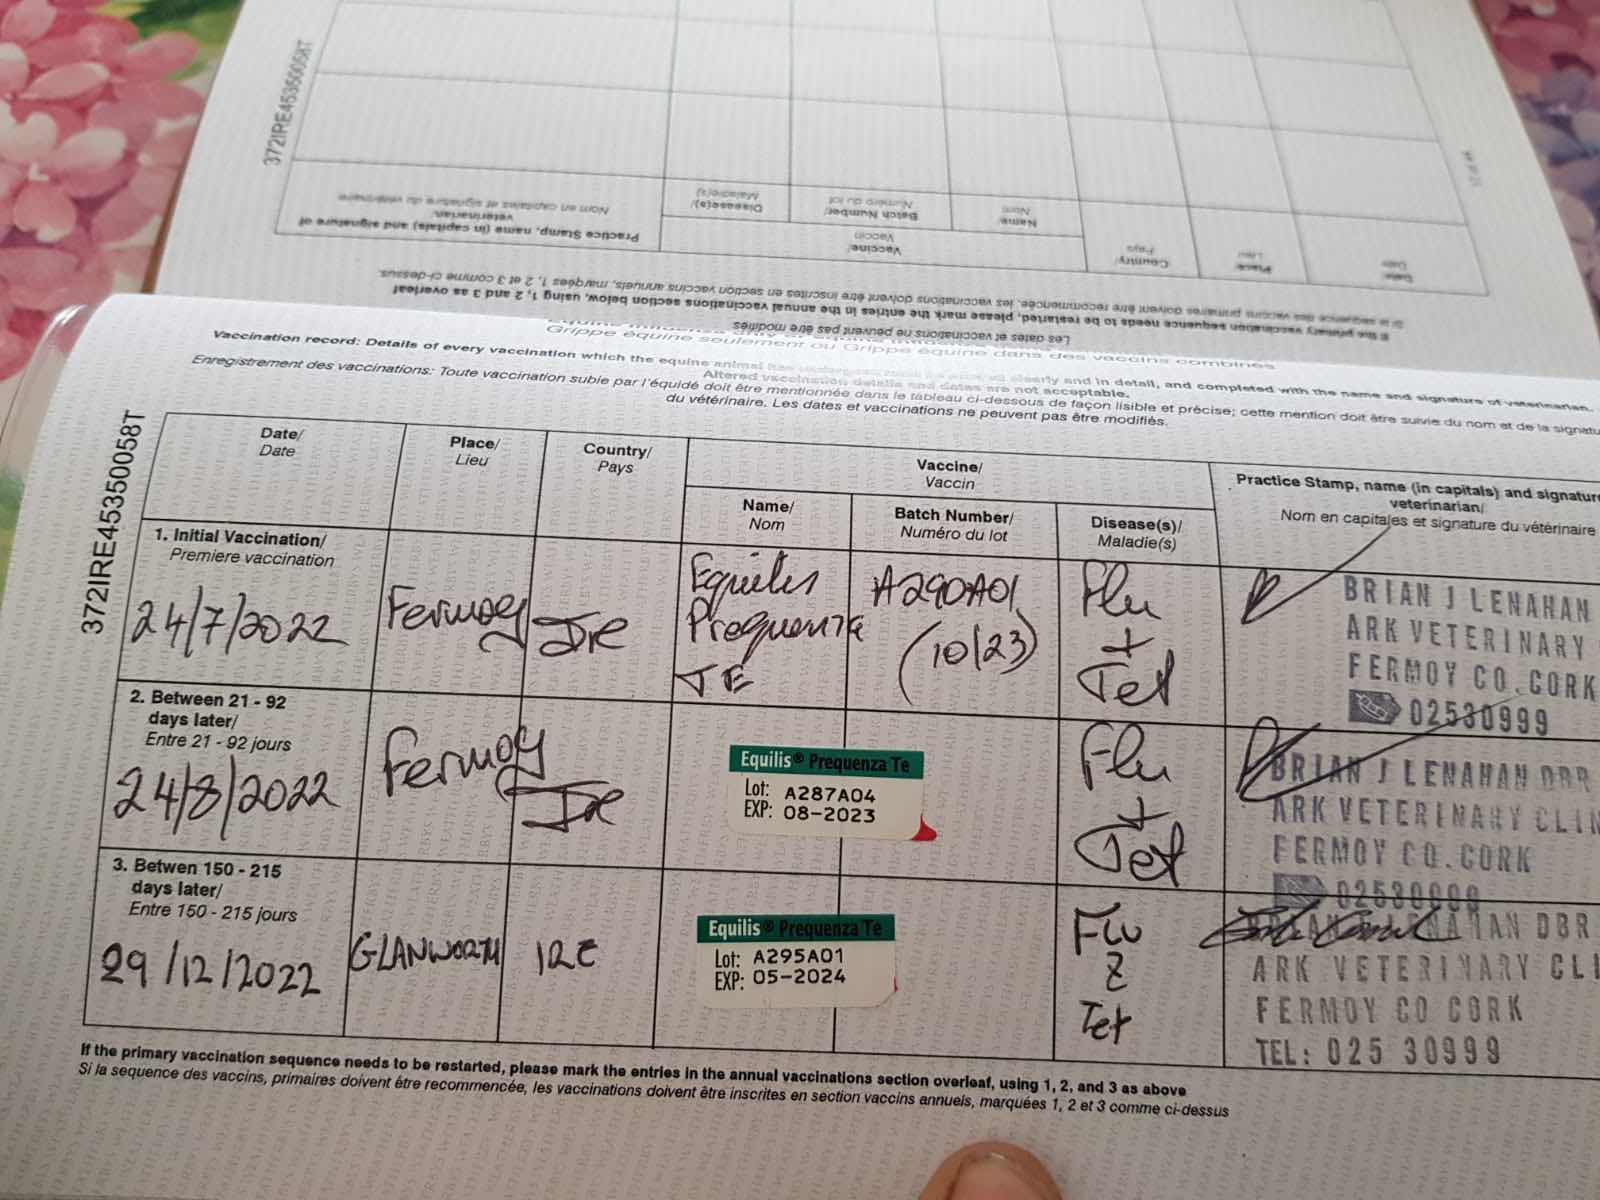 372IRE45350058T
Practice Stamp, name (in capitals) and signature of
veterinarian/
Nom en capitales et signature du vétérinaire
Vaccine/
Vaccin
Disease(s)/
Maladie(s)
Batch Number/
Numéro du lot
Name/
Nom
Country/
Pays
Place/
Lieu
Date/
Date
If the primary vaccination sequence needs to be restarted, please mark the entries in the annual vaccinations section below, using 1, 2 and 3 as overleaf
Si la sequence des vaccins primaires doivent être recommencée, les vaccinations doivent être inscrites en section vaccins annuels, marquées 1, 2 et 3 comme ci-dessus.
Les dates et vaccinations ne peuvent pas être modifiés
Grippe équine seulement ou Grippe équine dans des vaccins combines
Vaccination record: Details of every vaccination which the equine animal has clearly and in detail, and completed with the name and signature of veterinarian.
Altered vaccination details and dates are not acceptable.
Enregistrement des vaccinations: Toute vaccination subie par l'équidé doit être mentionnée dans le tableau ci-dessous de façon lisible et précise; cette mention doit être suivie du nom et de la signatu
du vétérinaire. Les dates et vaccinations ne peuvent pas être modifiés.
372IRE45350058T
Date/
Date
Place/
Lieu
Country/
Pays
Vaccine/
Vaccin
Name/
Nom
Batch Number/
Numéro du lot
Disease(s)/
Maladie(s)
Practice Stamp, name (in capitals) and signature
veterinarian/
Nom en capitales et signature du vétérinaire
1. Initial Vaccination/
Premiere vaccination
24/7/2022
Fermoy
Ire
Equilis
Prequenza
TE
A290A01
(10/23)
Flu
+
Tet
BRIAN J LENAHAN
ARK VETERINARY
FERMOY CO.CORK
02530999
2. Between 21 - 92
days later/
Entre 21 - 92 jours
24/8/2022
Fermoy
Ire
Equilis® Prequenza Te
Lot: A287A04
EXP: 08-2023
Flu
+
Tet
BRIAN J LENAHAN DBR
ARK VETERINARY CLIN
FERMOY CO.CORK
02530999
3. Betwen 150 - 215
days later/
Entre 150 - 215 jours
29/12/2022
GLANWORTH
IRE
Equilis® Prequenza Te
Lot: A295A01
EXP: 05-2024
Flu
&
Tet
BRIAN J LENAHAN DBR
ARK VETERINARY CLI
FERMOY CO CORK
TEL: 025 30999
If the primary vaccination sequence needs to be restarted, please mark the entries in the annual vaccinations section overleaf, using 1, 2, and 3 as above
Si la sequence des vaccins, primaires doivent être recommencée, les vaccinations doivent être inscrites en section vaccins annuels, marquées 1, 2 et 3 comme ci-dessus